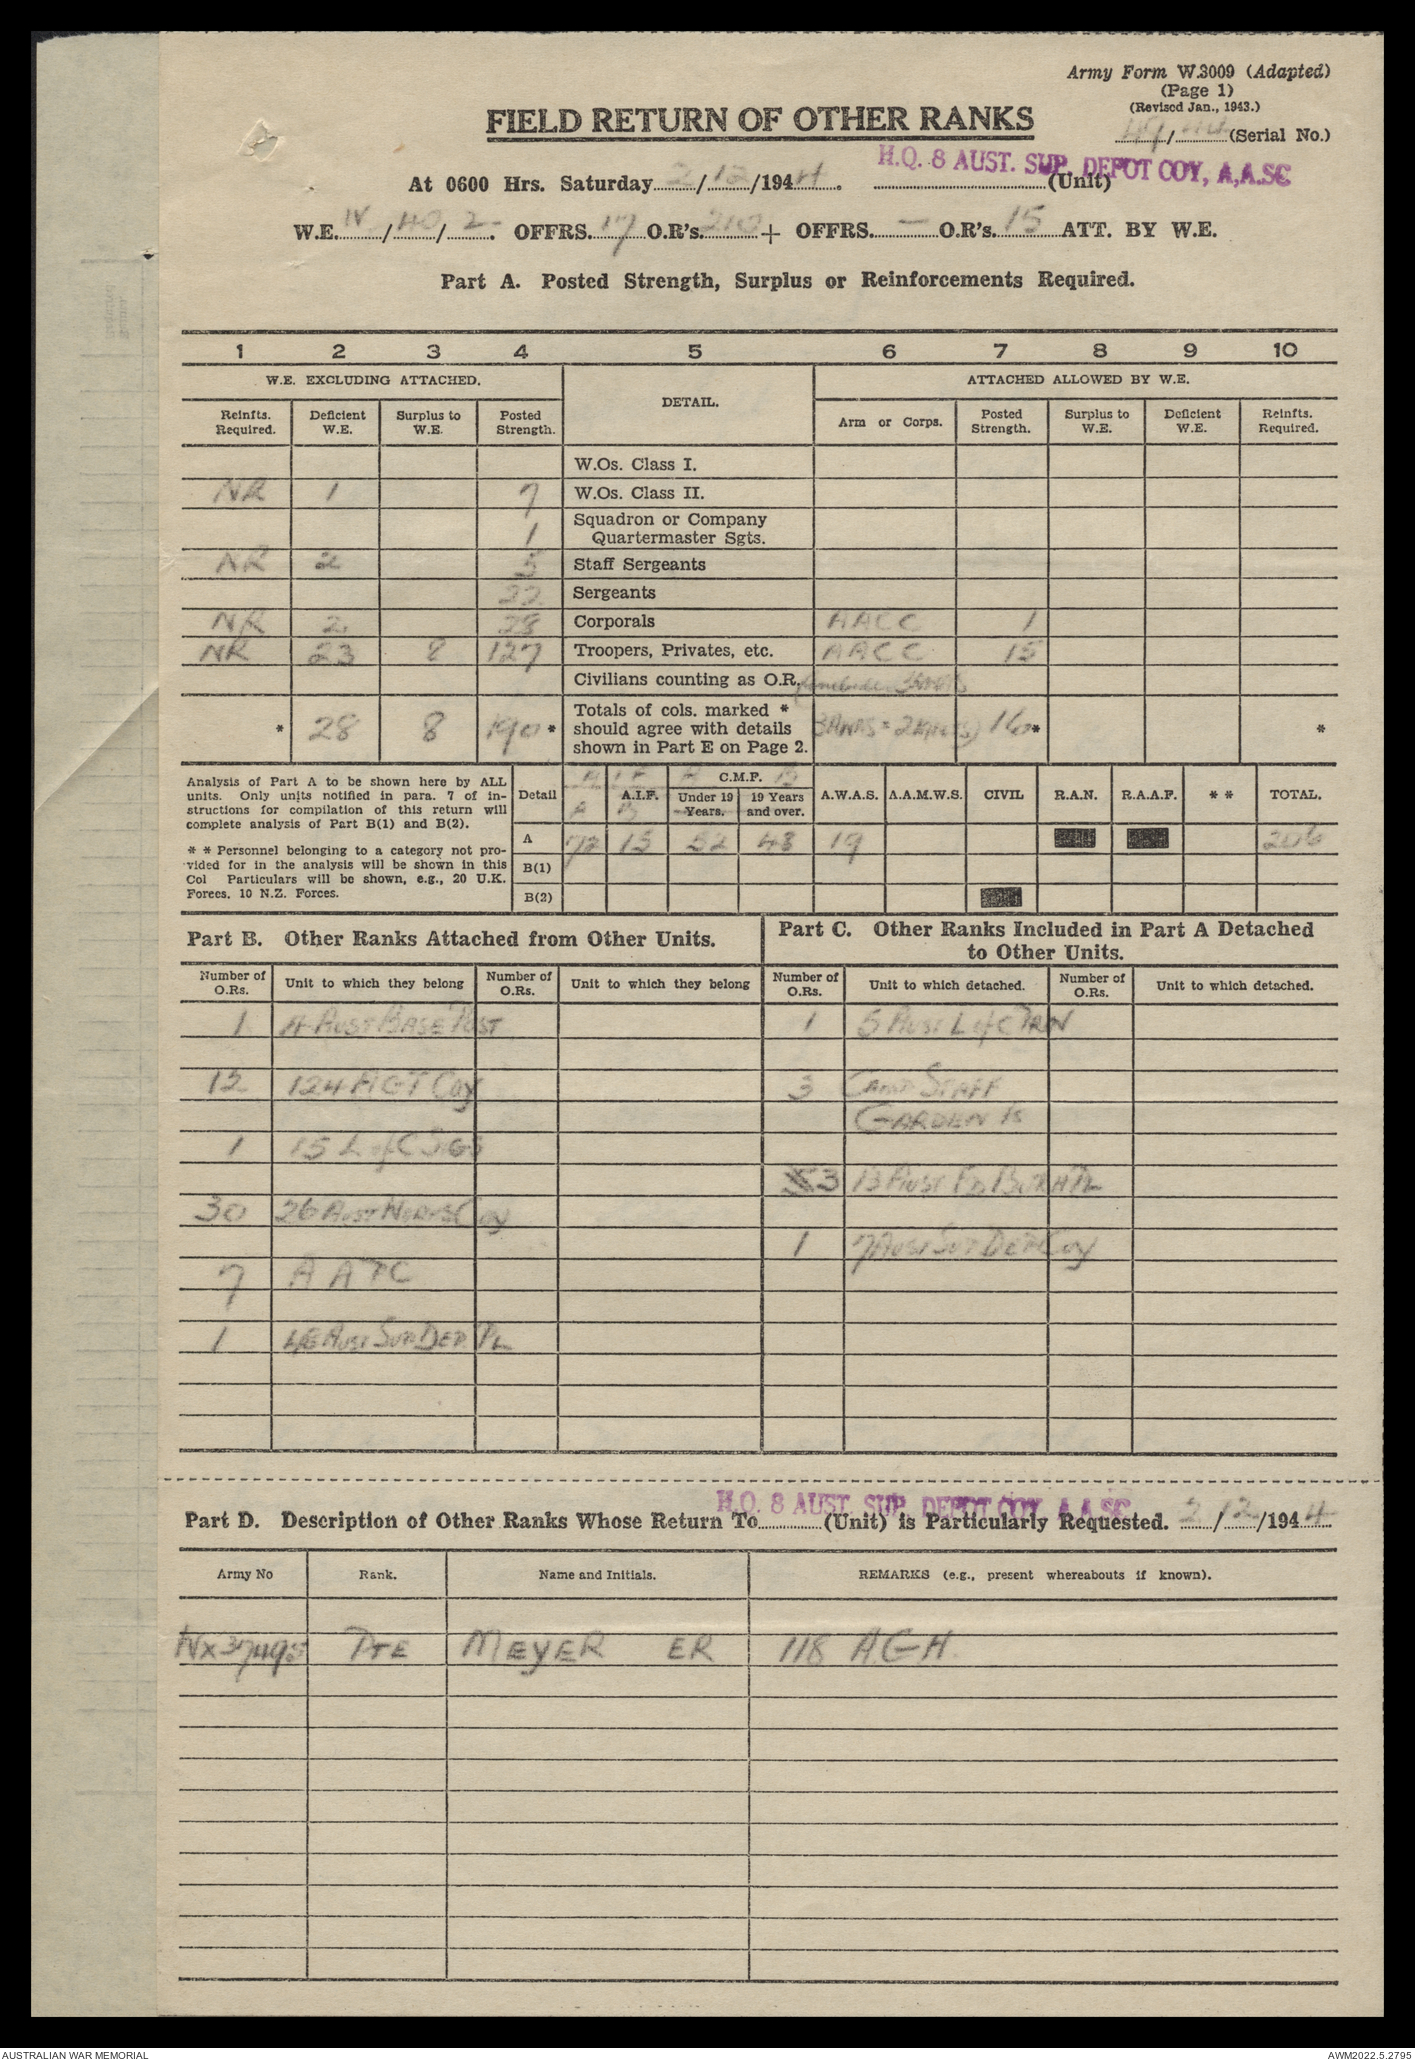 Army Form W.3009 (Adapted)
(Page 1)
(Revised Jan., 1943.)
FIELD RETURN OF OTHER RANKS
49/44 (Serial No.)
H.Q. 8 AUST. SUP. DEPOT COY, A.A.S.C
At 0600 Hrs. Saturday 2/12/1944. (Unit)
W.E. IV/40/2. OFFRS. 17 O.R's. 210 + OFFRS. — O.R's. 15 ATT. BY W.E.
Part A. Posted Strength, Surplus or Reinforcements Required.
1 2 3 4 5 6 7 8 9 10
W.E. EXCLUDING ATTACHED. DETAIL. ATTACHED ALLOWED BY W.E.
Reinfts. Required. Deficient W.E. Surplus to W.E. Posted Strength. Arm or Corps. Posted Strength. Surplus to W.E. Deficient W.E. Reinfts. Required.
W.Os. Class I.
NR 1 7 W.Os. Class II.
1 Squadron or Company Quartermaster Sgts.
NR 2 5 Staff Sergeants
22 Sergeants
NR 2 28 Corporals AACC 1
NR 23 8 127 Troopers, Privates, etc. AACC 15
Civilians counting as O.R.
* 28 8 190 * Totals of cols. marked * should agree with details shown in Part E on Page 2. 16 * *
Analysis of Part A to be shown here by ALL
units. Only units notified in para. 7 of in-
structions for compilation of this return will
complete analysis of Part B(1) and B(2).
* * Personnel belonging to a category not pro-
vided for in the analysis will be shown in this
Col Particulars will be shown, e.g., 20 U.K.
Forces. 10 N.Z. Forces.
AIF A C.M.F. B
Detail A B A.I.F. Under 19 Years. 19 Years and over. A.W.A.S. A.A.M.W.S. CIVIL R.A.N. R.A.A.F. * * TOTAL.
A 72 15 52 48 19 206
B(1)
B(2)
Part B. Other Ranks Attached from Other Units.
Number of O.Rs. Unit to which they belong Number of O.Rs. Unit to which they belong
1 4 AUST BASE POST
12 124 AGT Coy
1 15 L of C SIGS
30 26 AUST WORKS Coy
7 AATC
1 46 AUST SUP DEP. PL
Part C. Other Ranks Included in Part A Detached
to Other Units.
Number of O.Rs. Unit to which detached. Number of O.Rs. Unit to which detached.
1 5 AUST L of C
3 CAMP STAFF
GARDEN Is
3 13 AUST FD BUTCH PL
1 7 AUST SUP DEP Coy
H.Q. 8 AUST. SUP. DEPOT COY, A.A.S.C
Part D. Description of Other Ranks Whose Return To (Unit) is Particularly Requested. 2/12/1944
Army No Rank. Name and Initials. REMARKS (e.g., present whereabouts if known).
PTE MEYER ER 118 A.G.H.
AUSTRALIAN WAR MEMORIAL
AWM2022.5.2795